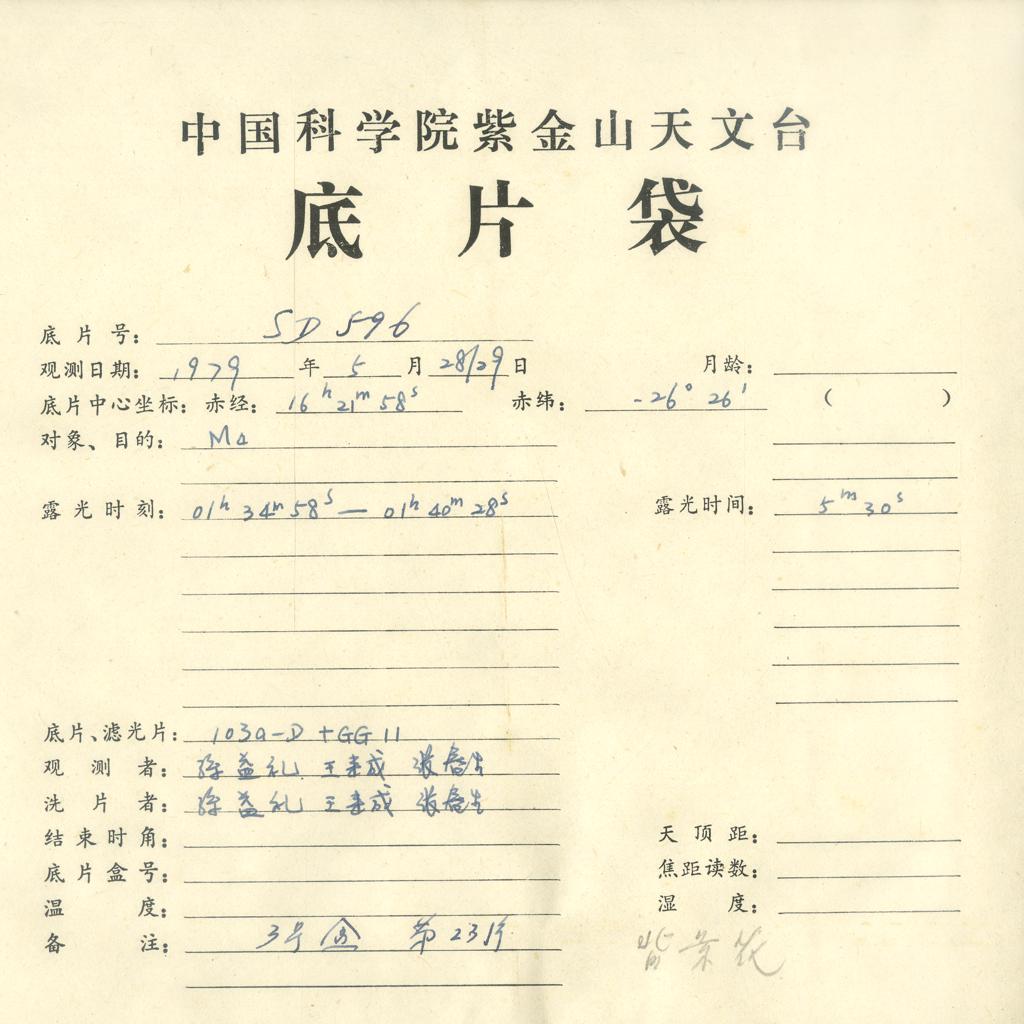 中国科学院紫金山天文台
底片袋
底片号： SD 596
观测日期： 1979 年 5 月 28/29 日 月龄：
底片中心坐标：赤经： 16h 21m 58s 赤纬： -26° 26′ （ ）
对象、目的： M4
露光时刻： 01h 34m 58s — 01h 40m 28s 露光时间： 5m 30s
底片、滤光片： 103a-D +GG 11
观测者： 益礼 王来成 张春生
洗片者： 益礼 王来成 张春生
结束时角： 天顶距：
底片盒号： 焦距读数：
温度： 湿度：
备注： 3号盒 第23片